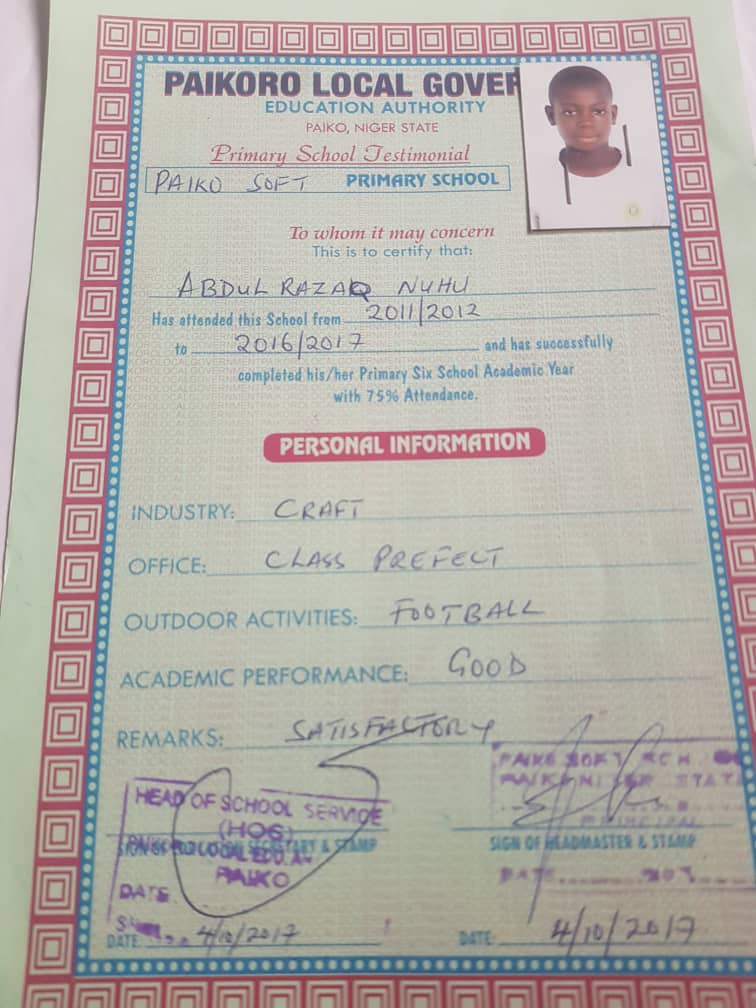 PAIKORO LOCAL GOVER
EDUCATION AUTHORITY
PAIKO, NIGER STATE
Primary School Testimonial
PAIKO SOFT PRIMARY SCHOOL
To whom it may concern
This is to certify that:
ABDUL RAZAQ NUHU
Has attended this School from 2011/2012
to 2016/2017 and has successfully
completed his/her Primary Six School Academic Year
with 75% Attendance.
PERSONAL INFORMATION
INDUSTRY: CRAFT
OFFICE: CLASS PREFECT
OUTDOOR ACTIVITIES: FOOTBALL
ACADEMIC PERFORMANCE: GOOD
REMARKS: SATISFACTORY
HEAD OF SCHOOL SERVICE
(HOS)
LOCAL EDU.
PAIKO
DATE
& STAMP
DATE: 4/10/2017
PAIKO SOFT SCH
STATE
SIGN OF HEADMASTER & STAMP
DATE 201
DATE: 4/10/2017